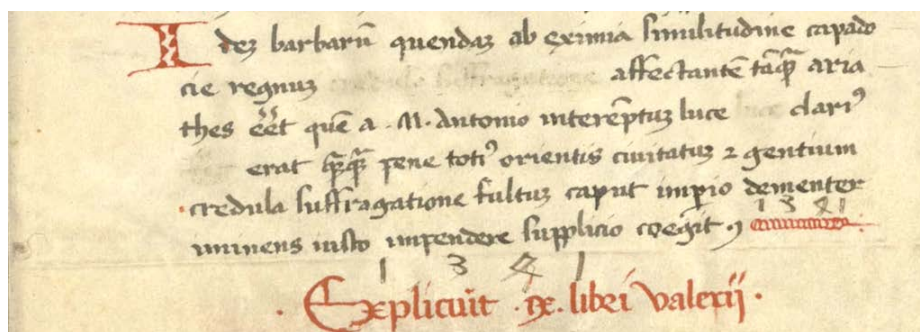 Idez barbarū quendaz ab eximia similitudine capado
cie regnuz credula suffragatione affectantē tāq̄ aria
thes eēt quē a . M. Antonio interēptuz luce luce clariꝰ
erat q̄q̄ pene totiꝰ orientis ciuitatuz ⁊ gentium
credula suffragatione fultuz caput imperio dementer
iminens iusto impendere supplicio coegit ·
1 3 4 1
1 3 4 1
· Explicuit · ix · libri valerij ·